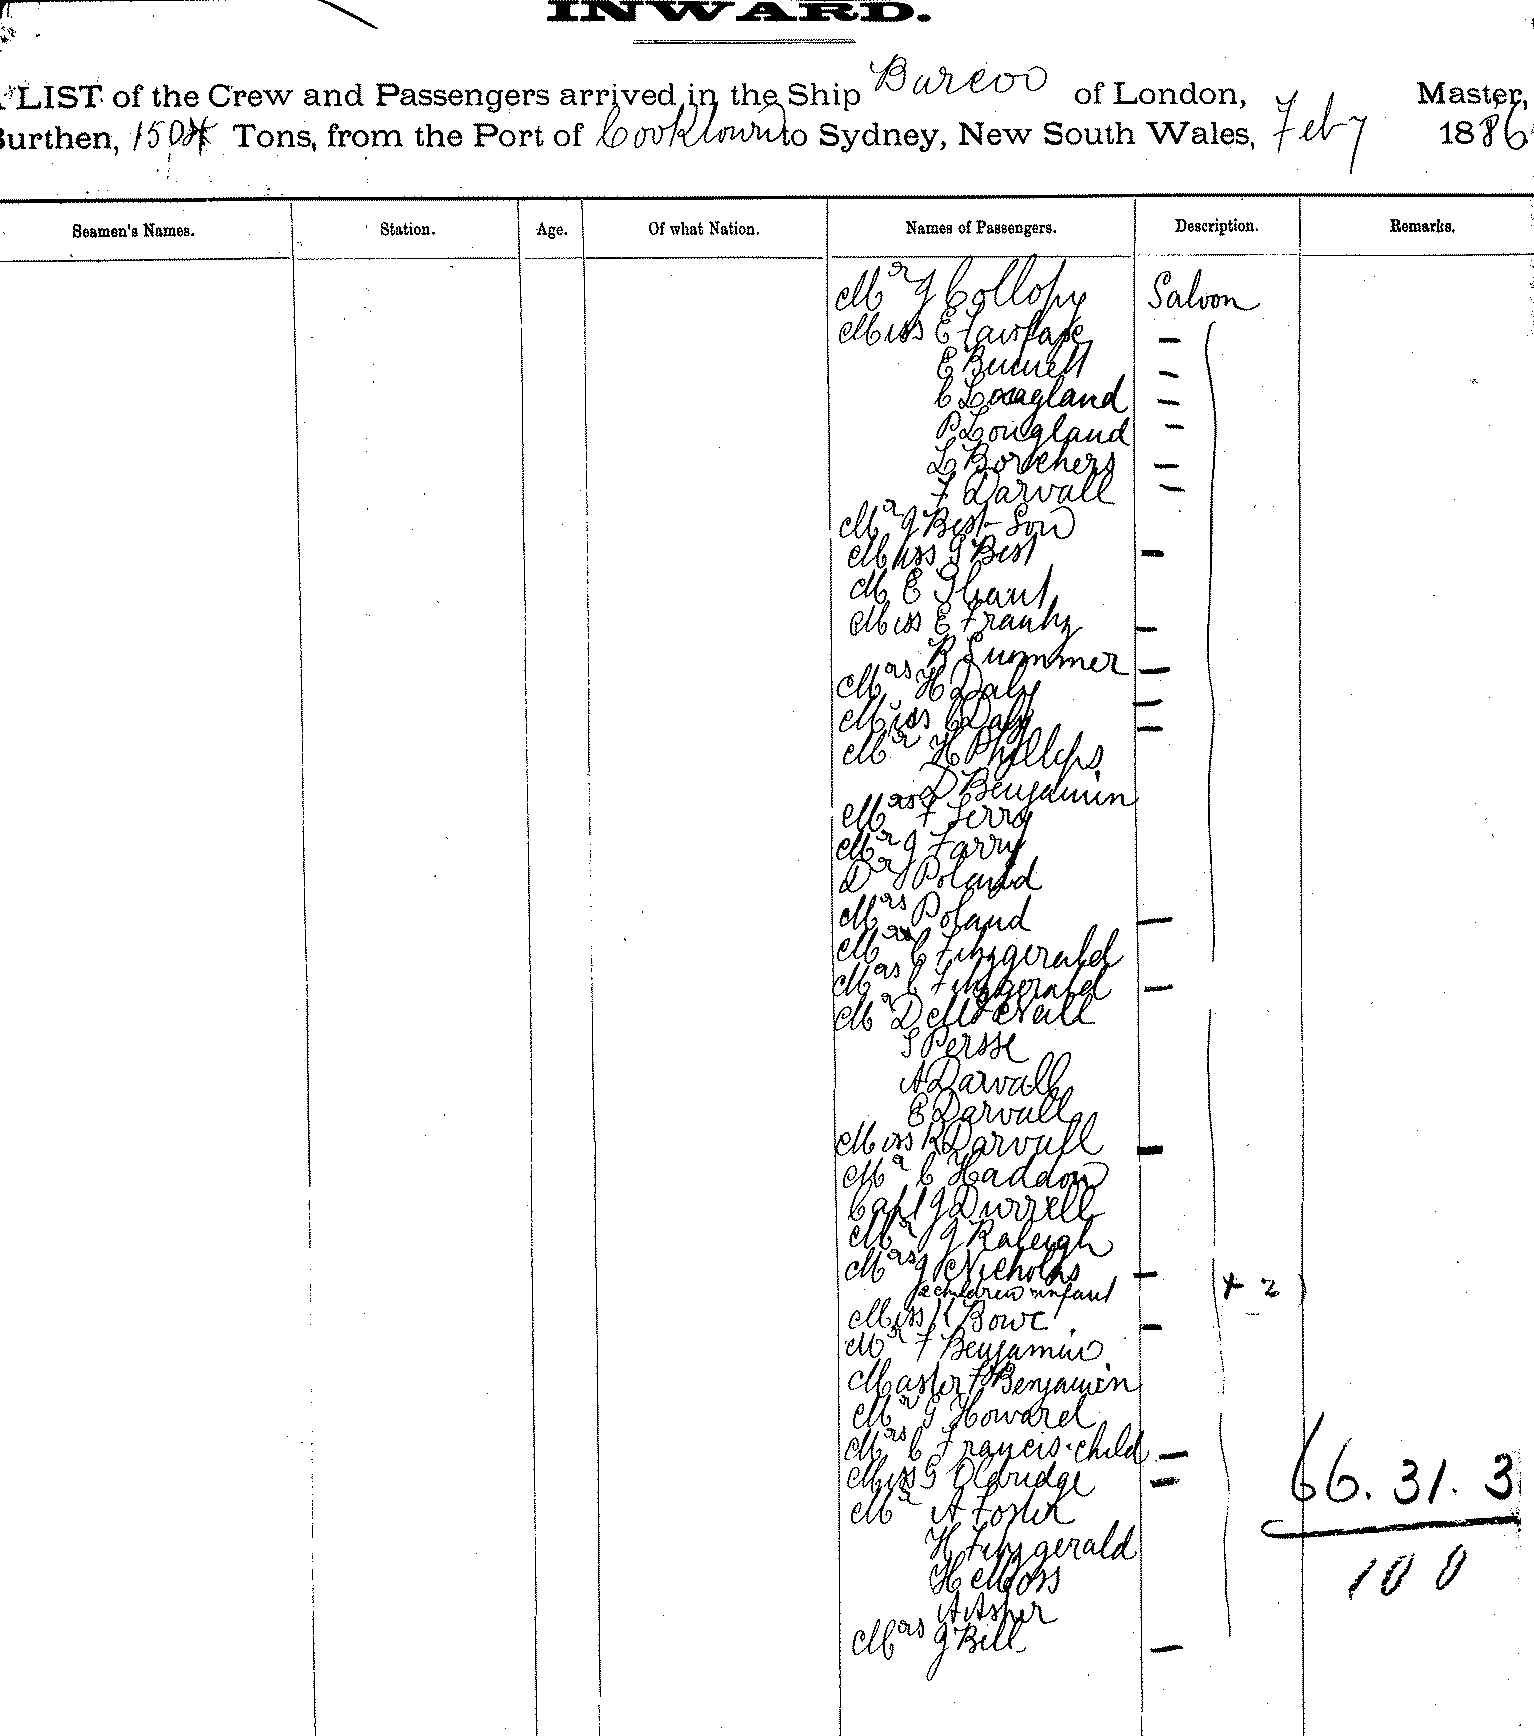 INWARD.
LIST of the Crew and Passengers arrived in the Ship Barcoo of London, Master,
Burthen, 1504 Tons, from the Port of Cooktown to Sydney, New South Wales, Feby 1886
Seamen's Names. Station. Age. Of what Nation. Names of Passengers. Description. Remarks.
Mr J Collopy Saloon
Miss E Fairfax —
E Burnett —
C Longland —
P Longland —
L Borchers —
F Darvall —
Mr J Best Son
Miss G Best —
M E
Miss E —
R Summer —
Mrs H Daly —
Miss C Daly —
Mr H Phillips
D Benjamin
Mrs F Terry
Mr J Farry
Dr Poland
Mrs Poland —
Mr C Fitzgerald
Mrs C Fitzgerald —
Mr D McNeill
S Persse
A Darvall
E Darvall
Miss R Darvall —
Mr C Haddon
Capt J Durrell
Mr J Raleigh
Mrs J Nicholas —
2 children infant + 2
Miss K Bowe —
Mr F Benjamin
Master F Benjamin
Mr G Howard
Mrs C Francis child —
Miss G Oldridge —
Mr A Foster
H Fitzgerald
H Moss
A Asher
Mrs J Bill —
66. 31. 3
100